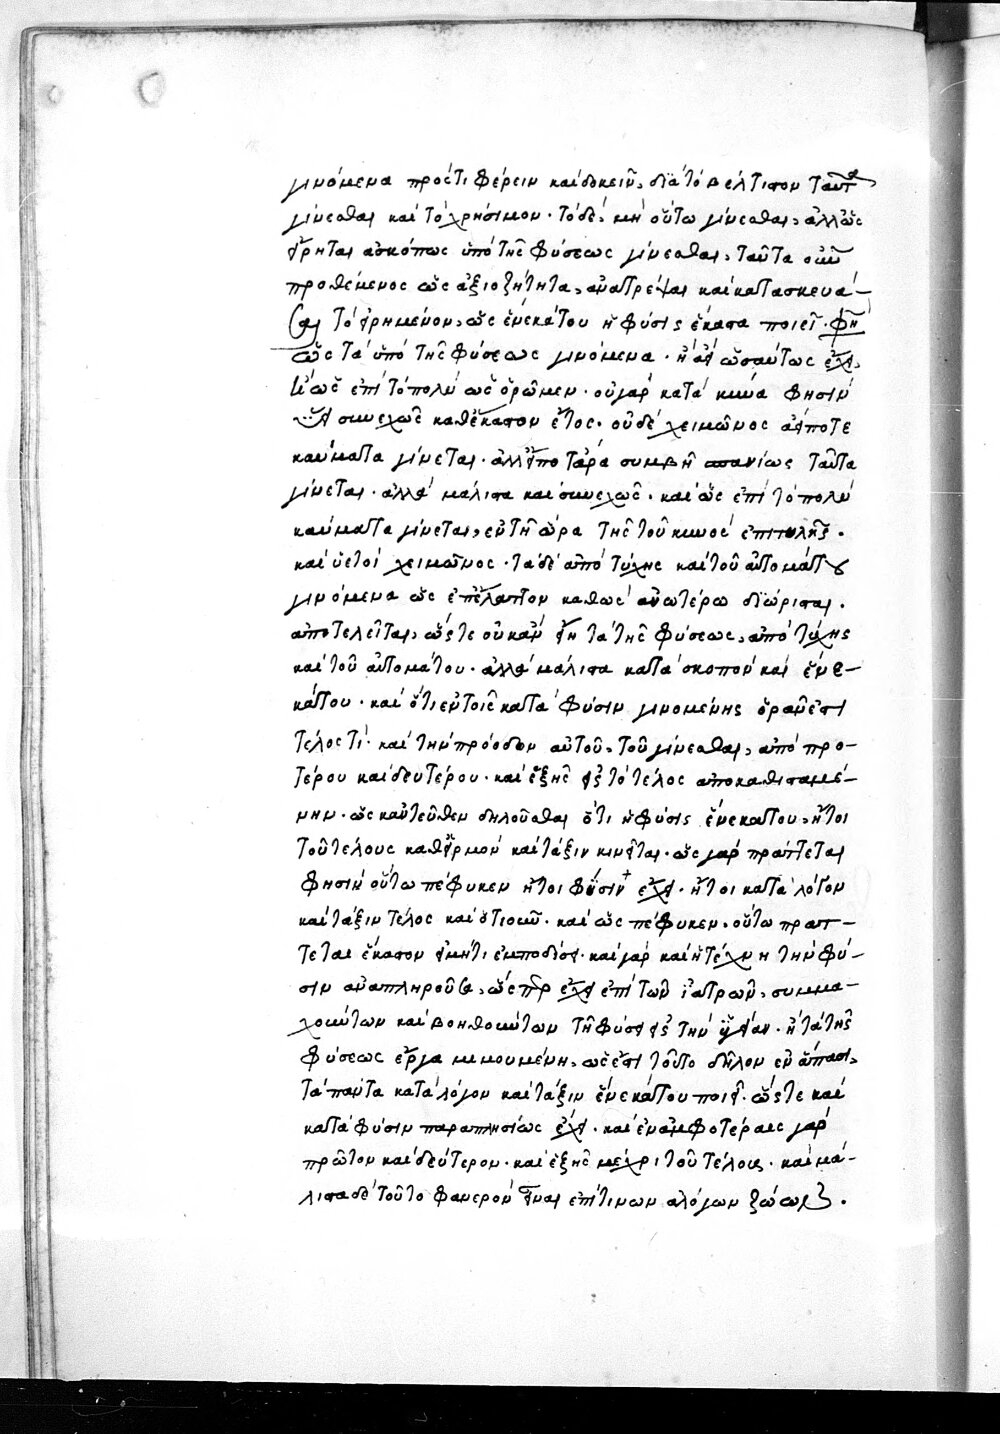 γινόμενα προσέτι φέρειν καὶ δοκεῖν, διὰ τὸ βέλτιστον ταῦτα
γίνεσθαι καὶ τὸ χρήσιμον· τὸ δὲ, μὴ οὕτω γίνεσθαι, ἀλλ' ὡς
εἴρηται ἀσκόπως ὑπὸ τῆς φύσεως γίνεσθαι, ταῦτα οὖν
προθέμενος ὡς ἀξιοζήτητα, ἀνατρέψαι καὶ κατασκευά-
σαι τὸ εἰρημένον, ὡς ἕνεκά του ἡ φύσις ἕκαστα ποιεῖ· φησὶ
ὡς τὰ ὑπὸ τῆς φύσεως γινόμενα· ἢ ἀεὶ ὡσαύτως ἔχει,
ἢ ὡς ἐπὶ τὸ πολὺ ὡς ὁρῶμεν· οὐ γὰρ κατὰ κύνα φησὶν
ὕει συνεχῶς καθ' ἕκαστον ἔτος· οὐδὲ χειμῶνος ἀεί ποτε
καύματα γίνεται· ἀλλ' εἴποτ' ἄρα συμβῇ σπανίως ταῦτα
γίνεται· ἀλλὰ μάλιστα καὶ συνεχῶς· καὶ ὡς ἐπὶ τὸ πολὺ
καύματα γίνεται, ἐν τῇ ὥρα τῆς τοῦ κυνὸς ἐπιτολῆς·
καὶ ὑετοὶ χειμῶνος· τὰ δὲ ἀπὸ τύχης καὶ τοῦ αὐτομάτου
γινόμενα ὡς ἐπ' ἔλαττον καθὼς ἀνωτέρω διώρισται·
ἀποτελεῖται, ὥστε οὐκ ἂν εἴη τὰ τῆς φύσεως, ἀπὸ τύχης
καὶ τοῦ αὐτομάτου· ἀλλὰ μάλιστα κατὰ σκοπὸν καὶ ἕνε-
κά του· καὶ ὅτι ἐν τοῖς κατὰ φύσιν γινομένης ὁρᾶν ἐστὶ
τέλος τί· καὶ τὴν πρόοδον αὐτοῦ, τοῦ γίνεσθαι, ἀπὸ προ-
τέρου καὶ δευτέρου· καὶ ἑξῆς εἰς τὸ τέλος ἀποκαθισταμέ-
νην· ὡς κἀντεῦθεν δηλοῦσθαι ὅτι ἡ φύσις ἕνεκά του, ἤτοι
τοῦ τέλους καθ' εἱρμὸν καὶ τάξιν κινεῖται· ὡς γὰρ πράττεται
φησὶν οὕτω πέφυκεν ἤτοι φύσιν ἔχει· ἤτοι κατὰ λόγον
καὶ τάξιν τέλος καὶ ὁτιοῦν· καὶ ὡς πέφυκεν· οὕτω πράτ-
τεται ἕκαστον εἰ μή τι ἐμποδίσει· καὶ γὰρ καὶ ἡ τέχνη τὴν φύ-
σιν ἀναπληροῦσα, ὥσπερ ἔχει ἐπὶ τῶν ἰατρῶν, συμμα-
χούντων καὶ βοηθούντων τῇ φύσει εἰς τὴν ὑγείαν· ἢ τὰ τῆς
φύσεως ἔργα μιμουμένη, ὡς ἔστι τοῦτο δῆλον ἐν ἅπασι,
τὰ πάντα κατὰ λόγον καὶ τάξιν ἕνεκά του ποιεῖ· ὥστε καὶ
κατὰ φύσιν παραπλησίως ἔχει· καὶ ἐν ἀμφοτέραις γὰρ
πρῶτον καὶ δεύτερον· καὶ ἑξῆς μέχρι τοῦ τέλους· καὶ μά-
λιστα δὲ τοῦτο φανερὸν εἶναι ἐπί τινων ἀλόγων ζώων·